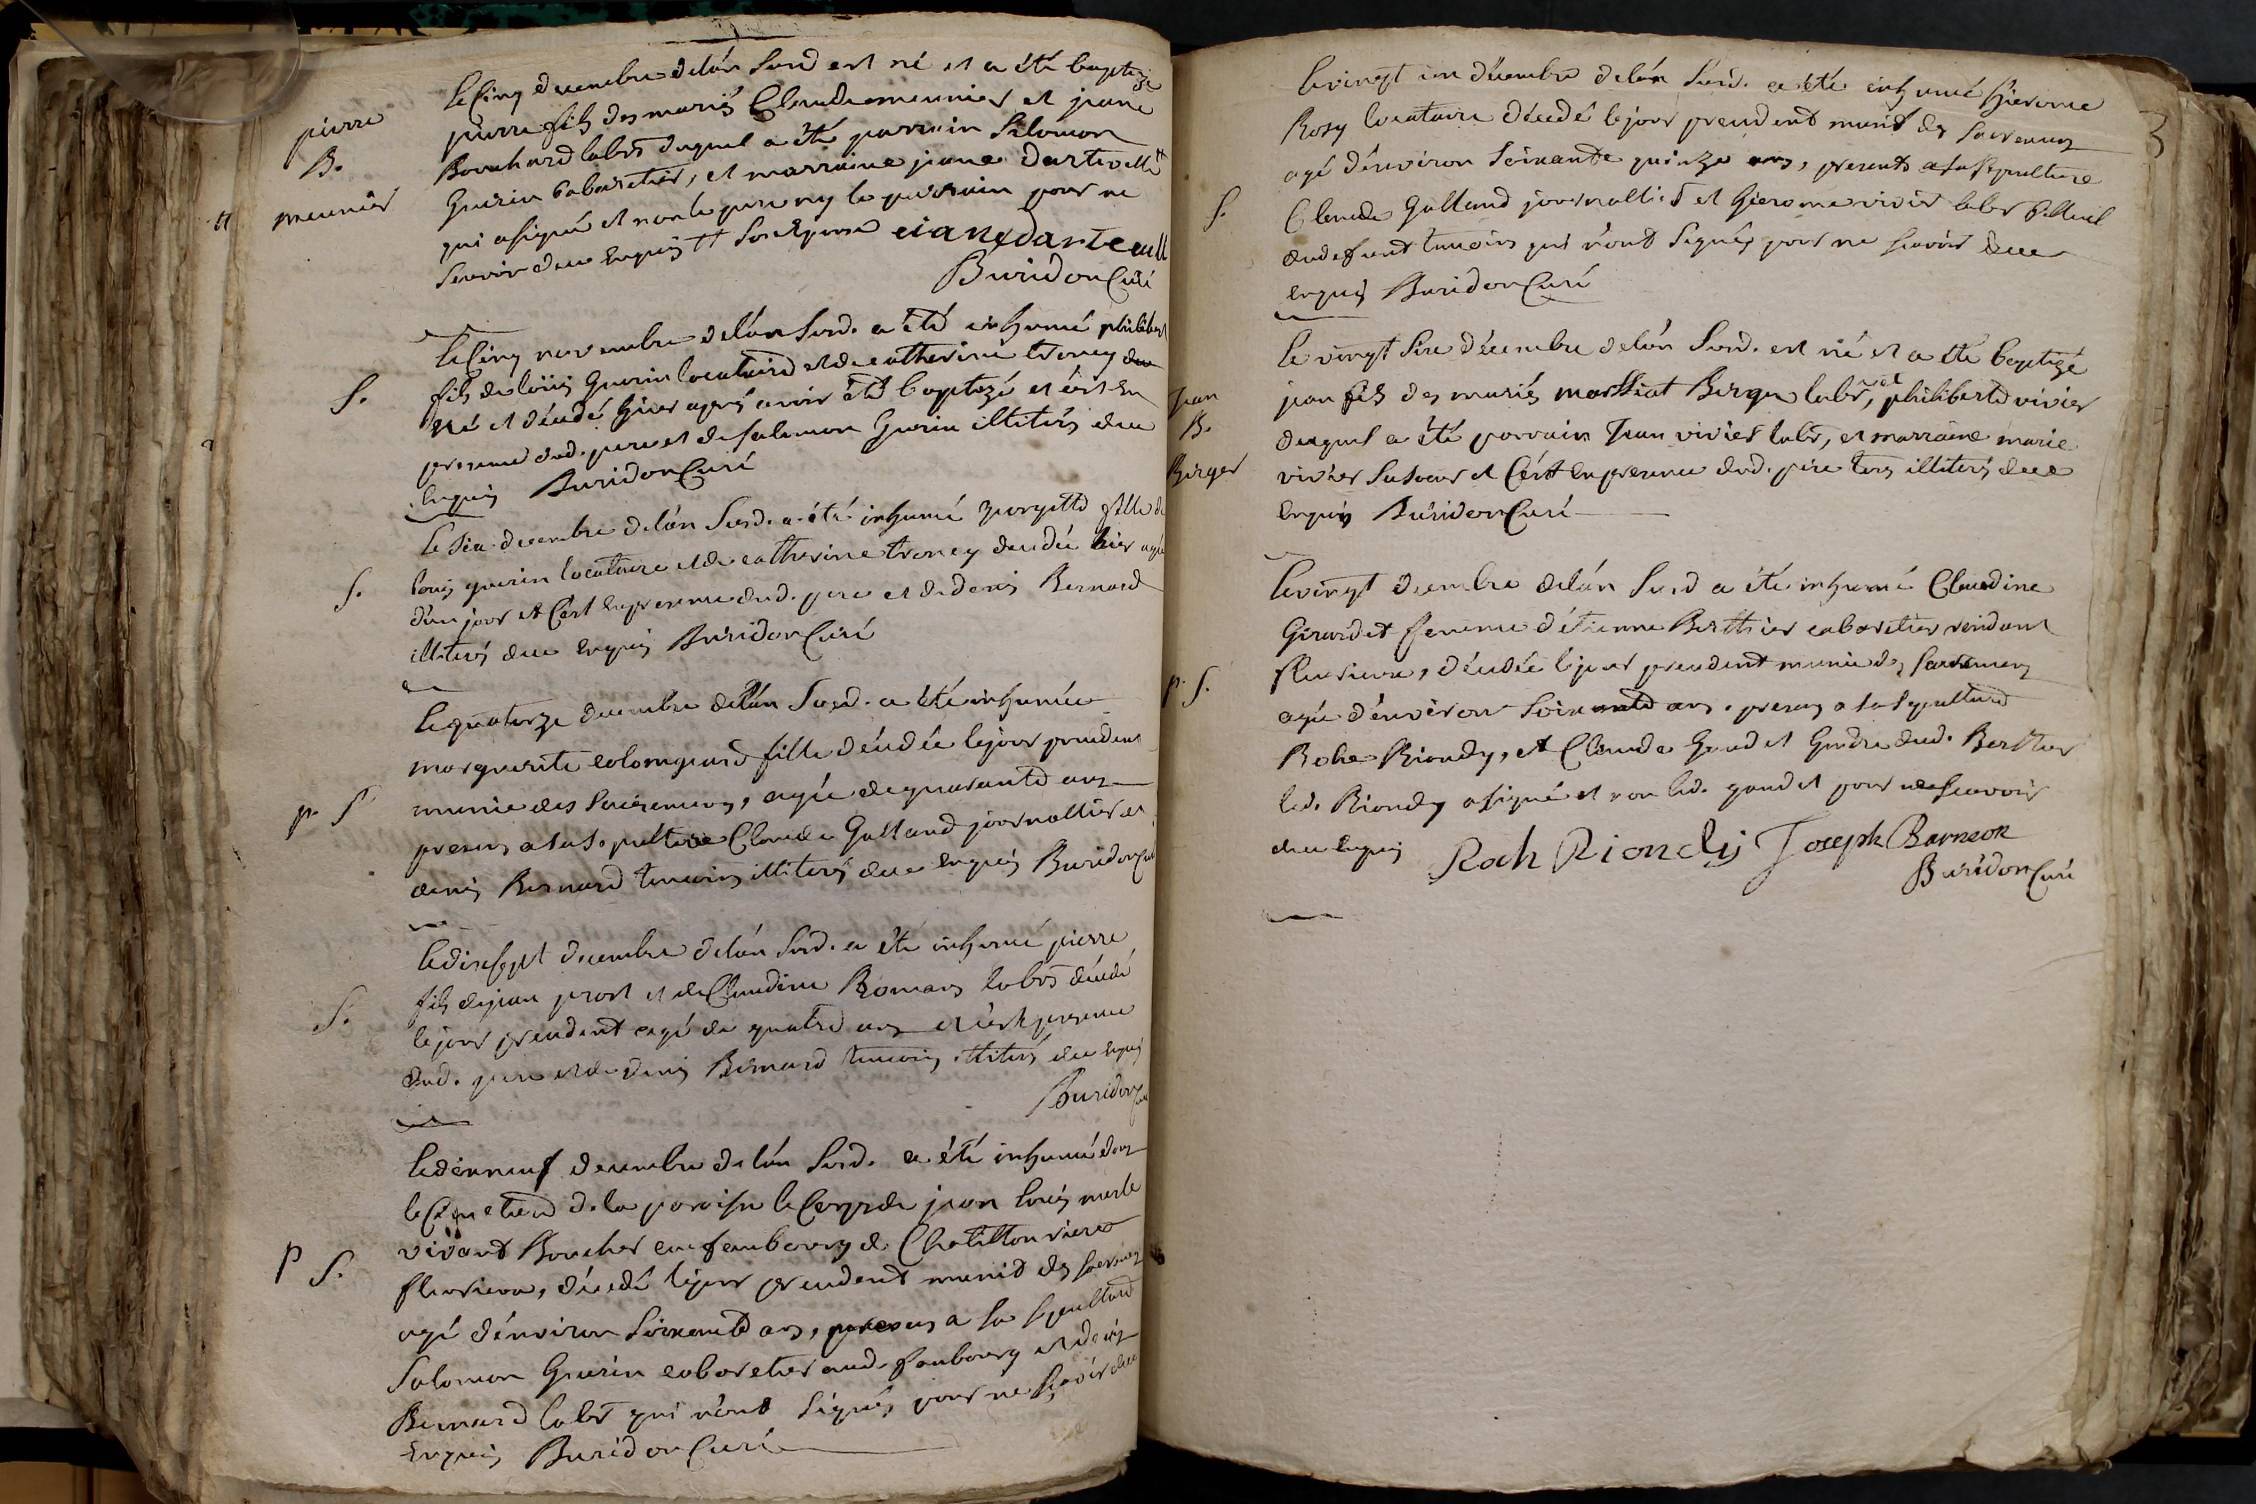 pierre
B.
meunier
Le cinq decembre de l'an susd. est né et a été baptizé
pierre fils des mariés Claude meunier et jeane
Bouchard labr. duquel a été parrain Salomon
Guerin cabaretier, et marraine jeane Dartevelle
qui a signé et non le pere ny le parrain pour ne
scavoir deue enquis
Buridon Curé
S.
Le cinq novembre de l'an susd. a été inhumé philibert
fils de loüis Guerin locataire et de catherine troncy
né et décédé hier aprés avoir été baptizé et c'est en
presence dud. pere et de salomon Guerin illiterés deue
enquis Buridon Curé
S.
Le six decembre de l'an susd. a été inhumé fille de
louis guerin locataire et de catherine troncy decedée hier agée
d'un jour et c'est en presence dud. pere et de denis Bernard
illiterés deue enquis Buridon Curé
p. S
Le quatorze decembre de l'an susd. a été inhumée
marguerite fille décédée le jour precedent
munie des sacremens, agée de quarante ans
presens a sa sepulture Claude Galland journallier et
denis Bernard temoins illiterés deue enquis Buridon Curé
S.
Le dixsept decembre de l'an susd. a été inhumé pierre
fils de jean prost et de Claudine Romans labr. décédé
le jour precedent agé de quatre ans et c'est presence
dud. pere et de denis Bernard temoins illiterés deue enquis
Buridon Curé
p S.
Le dixneuf decembre de l'an susd. a été inhumé dans
le cimetiere de la paroisse le corps de jean louis merle
vivant Boucher au faubourg de Chatillon riere
fleurieux, décédé le jour precedent munit des sacremens
agé d'environ soixante ans, presens a sa sepulture
Salomon Guerin cabaretier aud. faubourg et denis
Bernard labr. qui n'ont signés pour ne scavoir deue
enquis Buridon Curé
3
S.
Le vingt un décembre de l'an susd. a été inhumé hierome
Rosy locataire décédé le jour precedent munit des sacremens
agé d'environ soixante quinze ans, presents a sa sepulture
Claude Galland journallier et hierome vivier labr.
dudefunt temoins qui n'ont signés pour ne scavoir deue
enquis Buridon Curé
Jean
B.
Berger
Le vingt six décembre de l'an susd. est né et a été baptizé
jean fils des mariés Berger labr, et philiberte vivier
duquel a été parrain Jean vivier labr, et marraine marie
vivier sa soeur et c'est en presence dud. pere tous illiterés deue
enquis Buridon Curé
p. S.
Le vingt decembre de l'an susd a été inhumé Claudine
Girardet femme d'étienne Berthier cabaretier residant
fleurieux, décédée le jour precedent munie des sacremens
agée d'environ soixante ans. presens a sa sepulture
Riondy, et Claude Gaudet Gendre dud. Berthier
led. Riondy a signé et non led. gaudet pour ne scavoir
deue enquis Roch Riondy Joseph Barneon
Buridon Curé